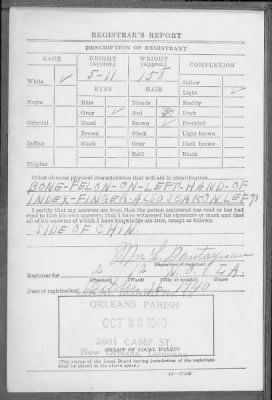 REGISTRAR'S REPORT
DESCRIPTION OF REGISTRANT
RACE HEIGHT (Approx.) WEIGHT (Approx.) COMPLEXION
White ✓ 5-11 158 Sallow
EYES HAIR Light ✓
Negro Blue Blonde Ruddy
Gray ✓ Red Dark
Oriental Hazel Brown ✓ Freckled
Brown Black Light brown
Indian Black Gray Dark brown
Bald Black
Filipino
Other obvious physical characteristics that will aid in identification
BONE-FELON-ON-LEFT-HAND-OF
INDEX-FINGER-ALSO SCAR ON LEFT
I certify that my answers are true; that the person registered has read or has had
read to him his own answers; that I have witnessed his signature or mark and that
all of his answers of which I have knowledge are true, except as follows:
SIDE OF CHIN
Mrs.
(Signature of registrar)
Registrar for 2 N.O. LA.
(Precinct) (Ward) (City or county) (State)
Date of registration October 16, 1940
ORLEANS PARISH
OCT 23 1940
3601 CAMP ST.
New Orleans, Louisiana
(STAMP OF LOCAL BOARD)
(The stamp of the Local Board having jurisdiction of the registrant
shall be placed in the above space.)